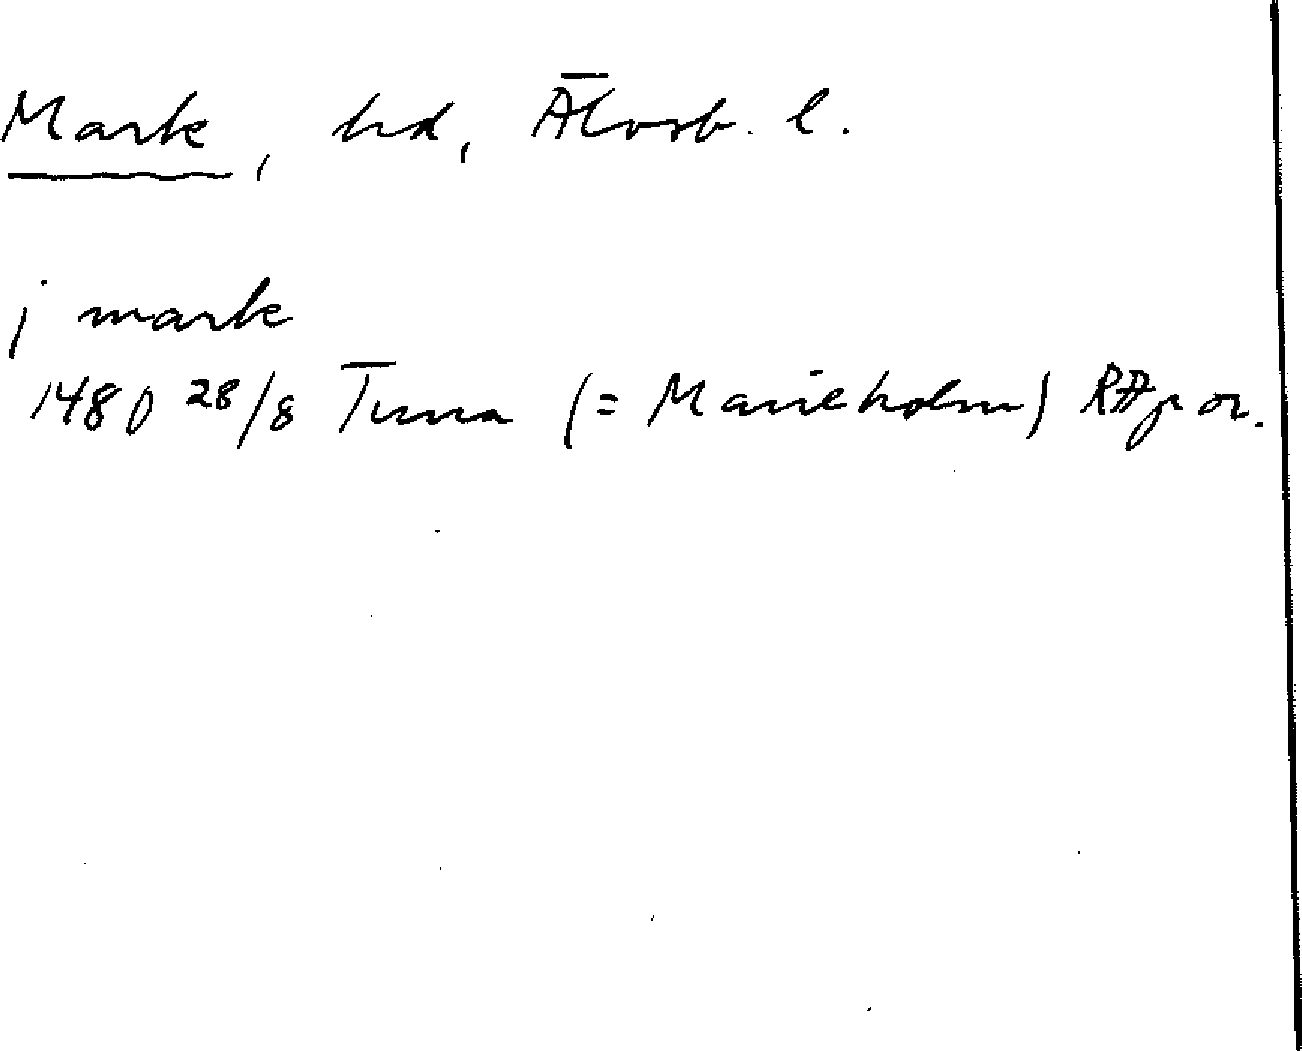 Mark, hd, Älvsb. l.
j mark
1480 28/8 Tuna (= Marieholm) RAp or.